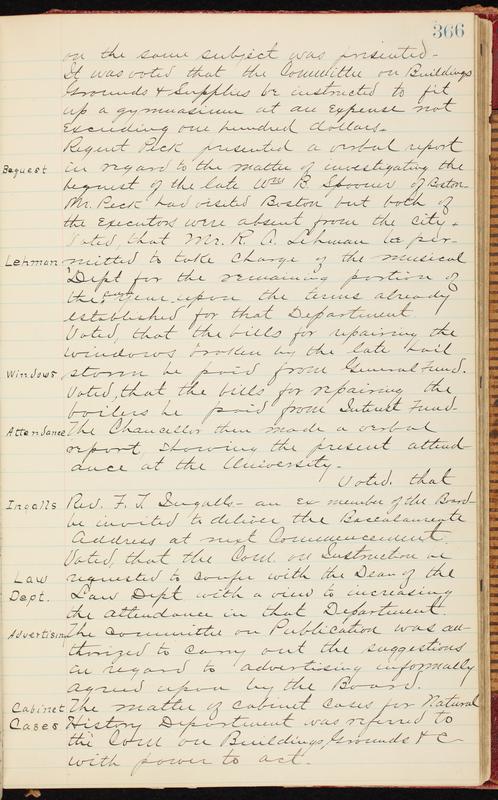 366
on the same subject was presented.
It was voted that the Committee on Buildings
Grounds & Supplies be instructed to fit
up a gymnasium at an expense not
exceeding one hundred dollars.
Regent Peck presented a verbal report
Bequest in regard to the matter of investigating the
bequest of the late Wm B. Spooner of Boston
Mr. Peck had visited Boston but both of
the Executors were absent from the city.
Voted, that Mr. R. A. Lehman be per-
Lehman mitted to take charge of the musical
Dept for the remaining portion of
the year upon the terms already
established for that Department
Voted, that the bills for repairing the
windows broken by the late hail
Windows storm be paid from General Fund.
Voted, that the bills for repairing the
boilers be paid from Interest Fund.
Attendance The Chancellor then made a verbal
report, showing the present attend-
ance at the University.
Voted, that
Ingalls Rev. F. T. Ingalls - an ex member of the Board
be invited to deliver the Baccalaureate
Address at next Commencement.
Voted, that the Com. on Instruction be
Law requested to confer with the Dean of the
Dept. Law Dept with a view to increasing
the attendance in that Department.
Advertising The Committee on Publication was au-
thorized to carry out the suggestions
in regard to advertising informally
agreed upon by the Board.
Cabinet The matter of cabinet cases for Natural
Cases History Department was referred to
the Com on Buildings, Grounds & C
with power to act.